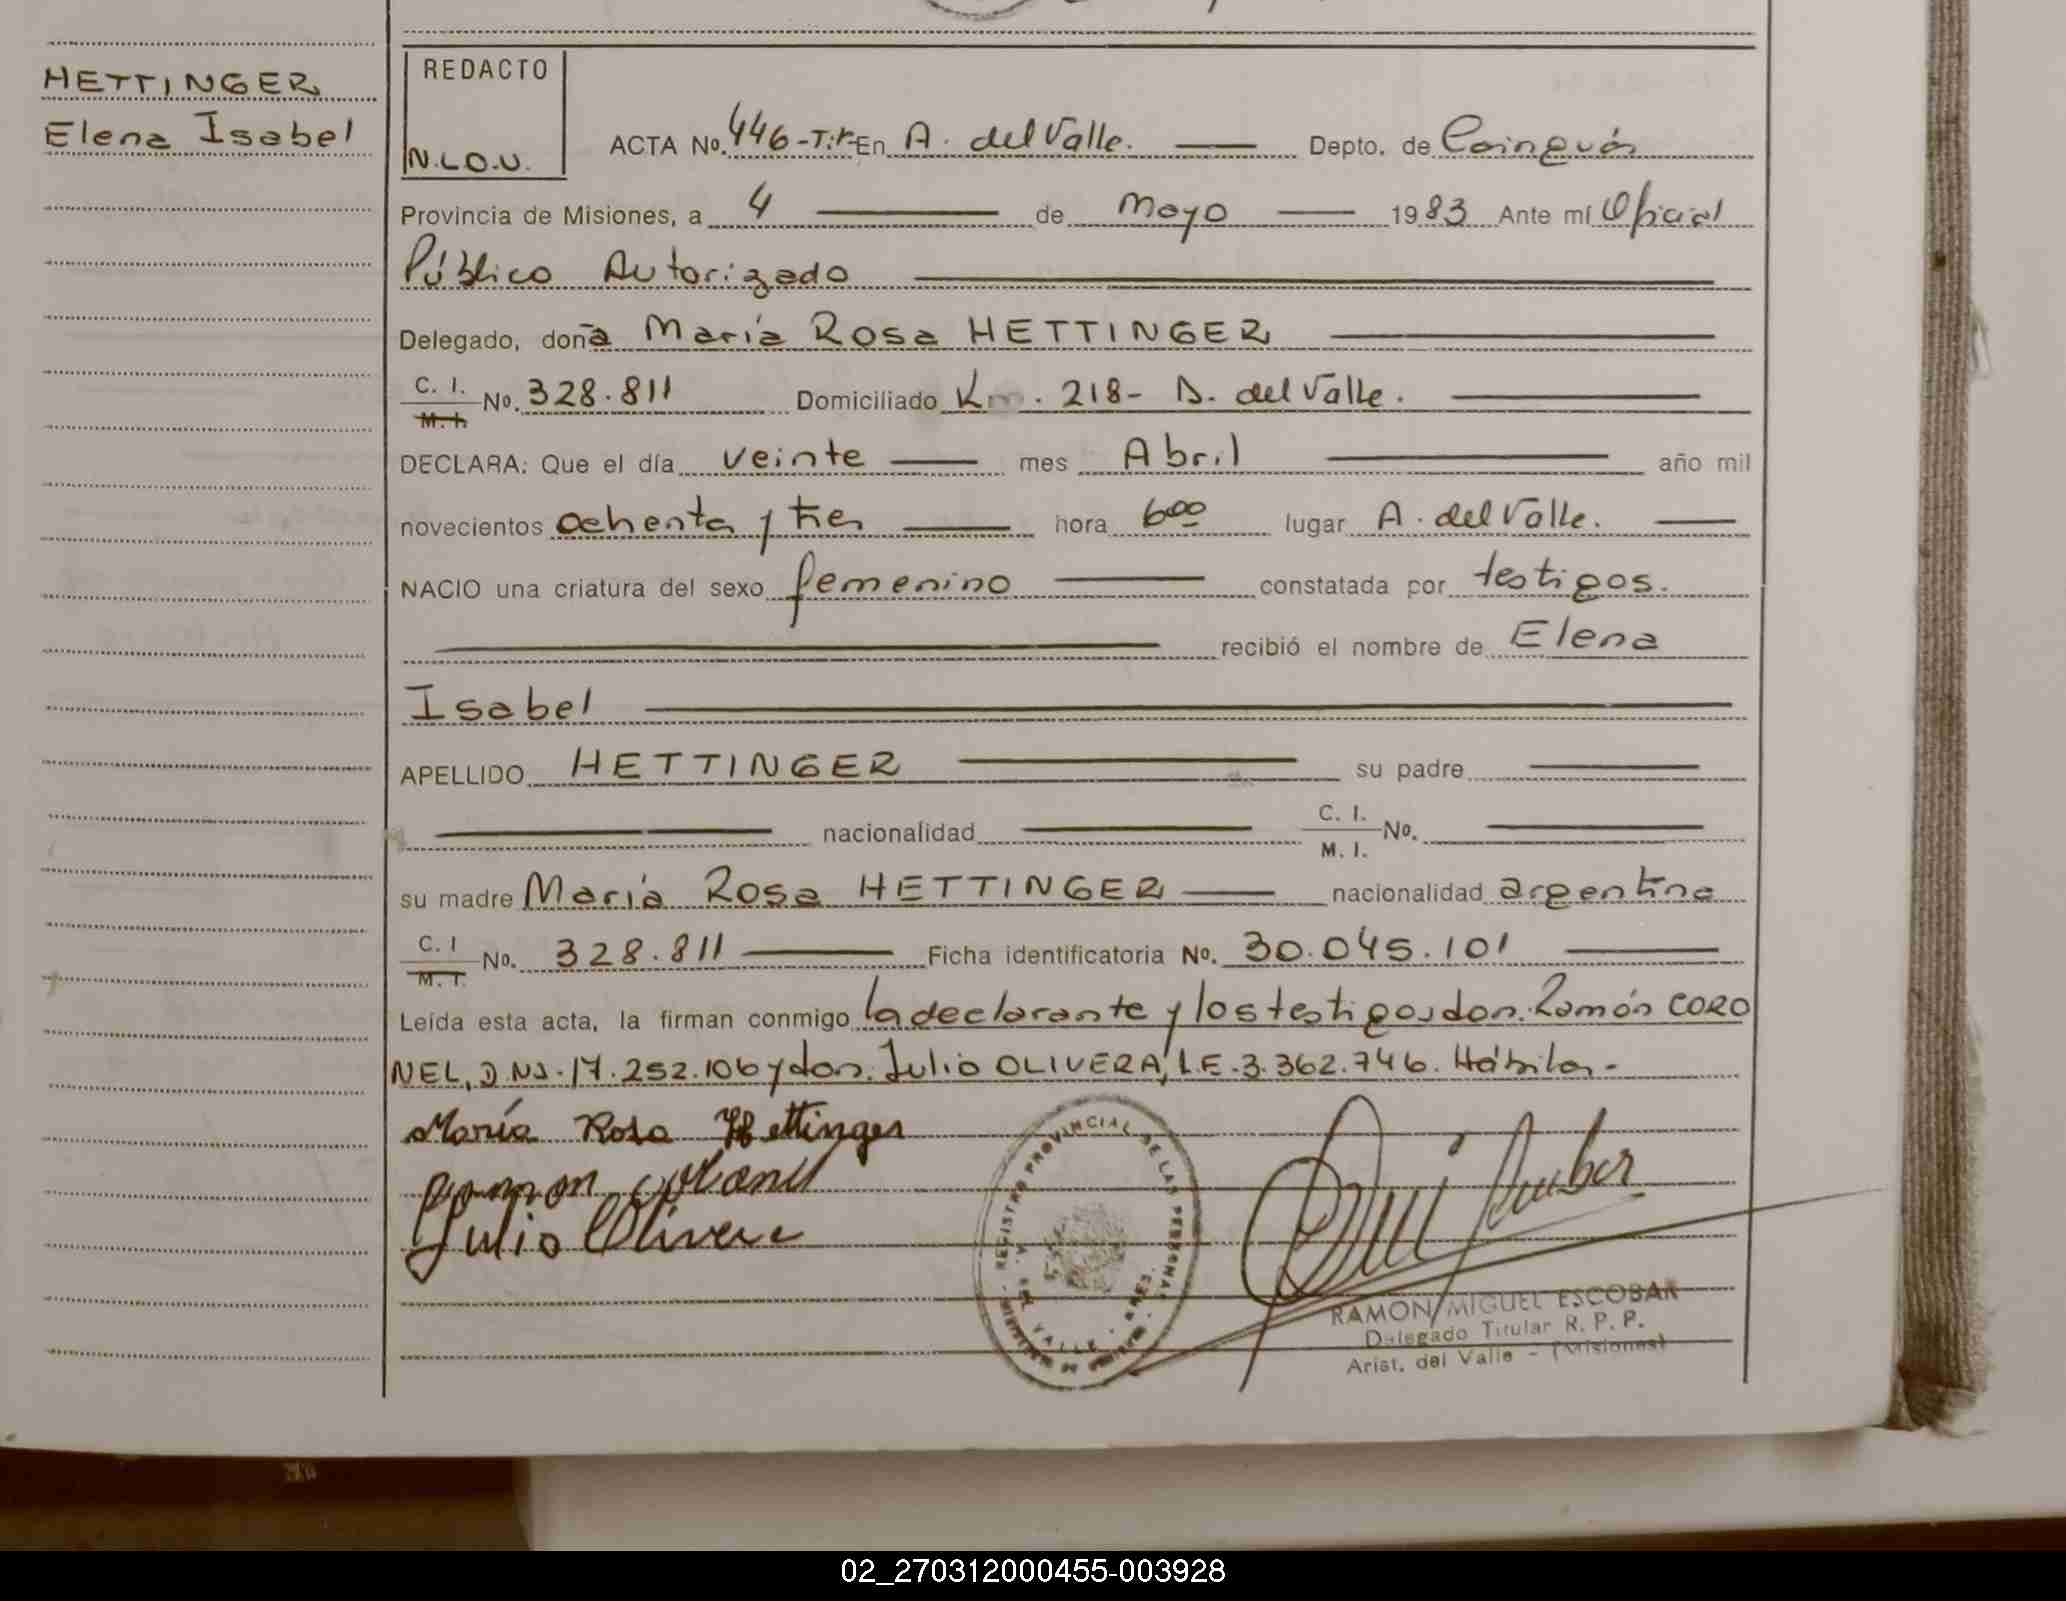 HETTINGER
Elena Isabel
REDACTO
N.L.O.U.
ACTA No. 446-T:I- En A. del Valle. Depto. de Cainguás
Provincia de Misiones, a 4 de Mayo 1983 Ante mí Oficial
Público Autorizado
Delegado, doña María Rosa HETTINGER
C. I.
M. I. No. 328.811 Domiciliado Km. 218- A. del Valle.
DECLARA: Que el día veinte mes Abril año mil
novecientos ochenta y tres hora 6oo lugar A. del Valle.
NACIO una criatura del sexo femenino constatada por testigos.
recibió el nombre de Elena
Isabel
APELLIDO HETTINGER su padre
nacionalidad C. I.
M. I. No.
su madre María Rosa HETTINGER nacionalidad argentina
C. I
M. I. No. 328.811 Ficha identificatoria No. 30.045.101
Leída esta acta, la firman conmigo la declarante y los testigos don. Ramón CORO
NEL, D.N.I. 17.252.106 y don. Julio OLIVERA, L.E. 3.362.746. Hábiles.-
María Rosa Hettinger
Ramon Coronel
Julio Olivera
REGISTRO PROVINCIAL DE LAS PERSONAS
VALLE
RAMON MIGUEL ESCOBAR
Delegado Titular R. P. P.
Arist. del Valle - (Misiones)
02_270312000455-003928